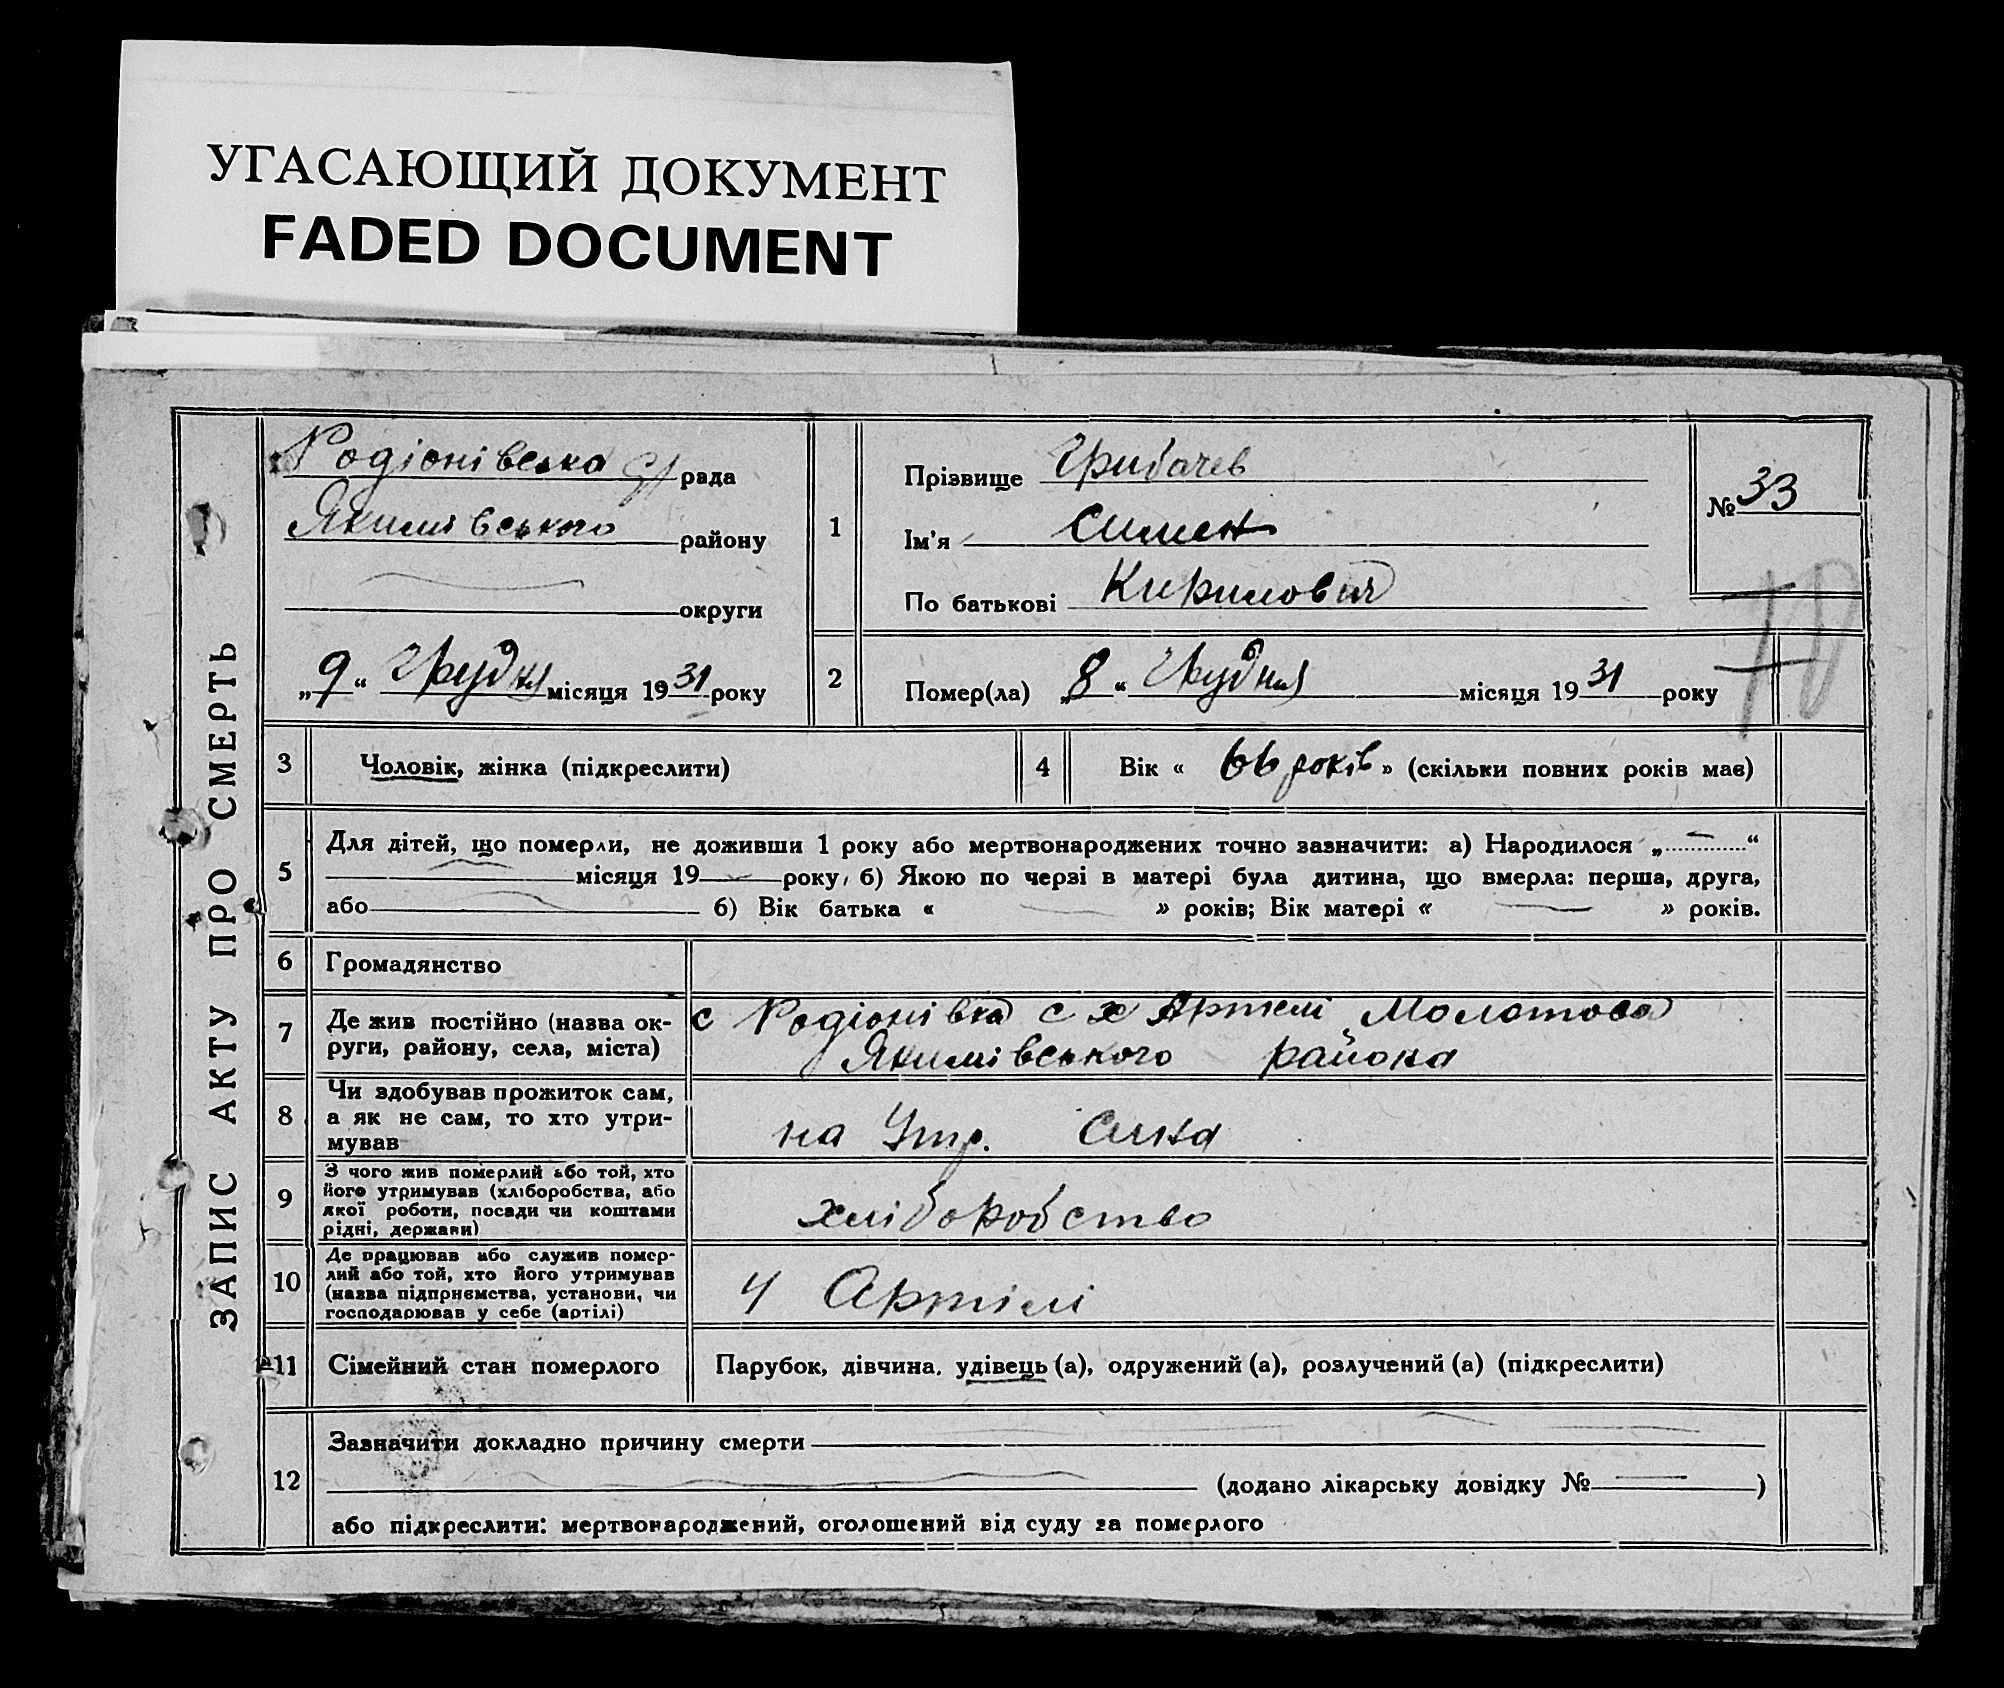 УГАСАЮЩИЙ ДОКУМЕНТ
FADED DOCUMENT
ЗАПИС АКТУ ПРО СМЕРТЬ
Родіонівська с/рада
Якимівського району
округи
„9“ Грудня місяця 1931 року
1
Прізвище Грибачев
Ім'я Симен
По батькові Кирилович
№ 33
2
Помер(ла) „8“ Грудня місяця 1931 року
3 Чоловік, жінка (підкреслити)
4 Вік « 66 років » (скільки повних років має)
5 Для дітей, що померли, не доживши 1 року або мертвонароджених точно зазначити: а) Народилося „ “
місяця 19 року, б) Якою по черзі в матері була дитина, що вмерла: перша, друга,
або б) Вік батька « » років; Вік матері « » років.
6 Громадянство
7 Де жив постійно (назва ок-
руги, району, села, міста)
с Родіонівка с х Артелі „Молотова
Якимівського района
8 Чи здобував прожиток сам,
а як не сам, то хто утри-
мував
на Утр. Сина
9 З чого жив померлий або той, хто
його утримував (хліборобства, або
якої роботи, посади чи коштами
рідні, держави)
хліборобство
10 Де працював або служив помер-
лий або той, хто його утримував
(назва підприємства, установи, чи
господарював у себе (артілі)
У Артілі
11 Сімейний стан померлого
Парубок, дівчина, удівець (а), одружений (а), розлучений (а) (підкреслити)
12 Зазначити докладно причину смерти
(додано лікарську довідку № )
або підкреслити: мертвонароджений, оголошений від суду за померлого